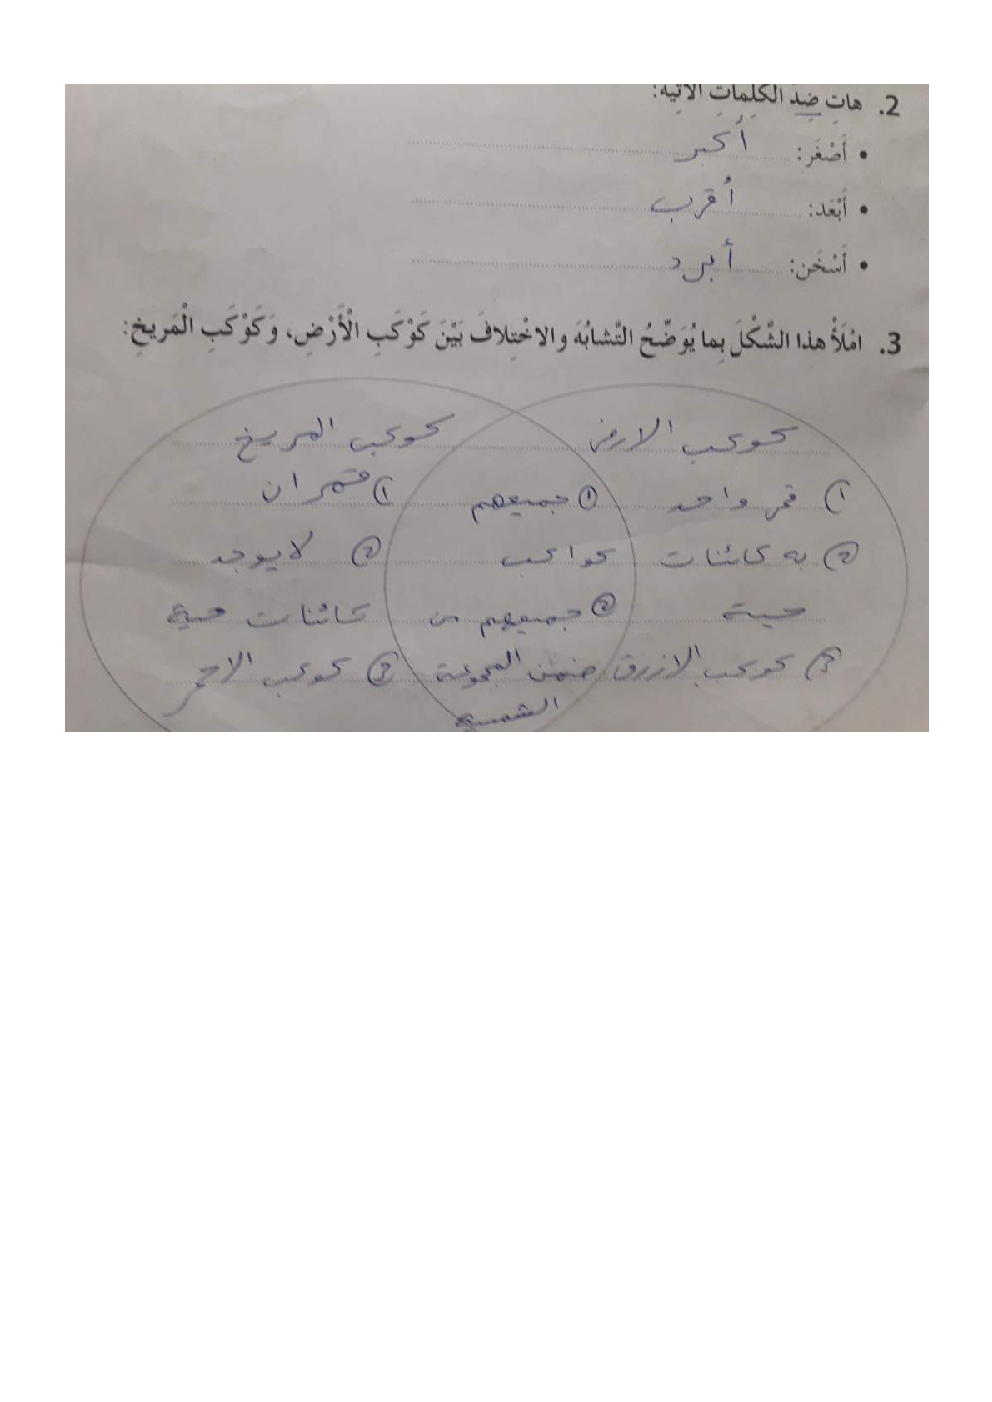 2. هاتِ ضِد الكَلِماتِ الآتِية:
• أَصْغَر: أَكبر
• أَبْعَد: أقرب
• أَسْخَن: أبرد
3. امْلَأْ هذا الشَّكْلَ بِما يُوَضِّحُ التَّشابُهَ والاخْتِلافَ بَيْنَ كَوْكَبِ الْأَرْضِ، وَكَوْكَبِ الْمَريخِ:
كوكب الارض
① قمر واحد
② به كائنات
حية
③ كوكب الازرق
① جميعهم
كواكب
② جميعهم من
ضمن المجموعة
الشمسية
كوكب المريخ
① قمران
② لا يوجد
كائنات حية
③ كوكب الاحمر